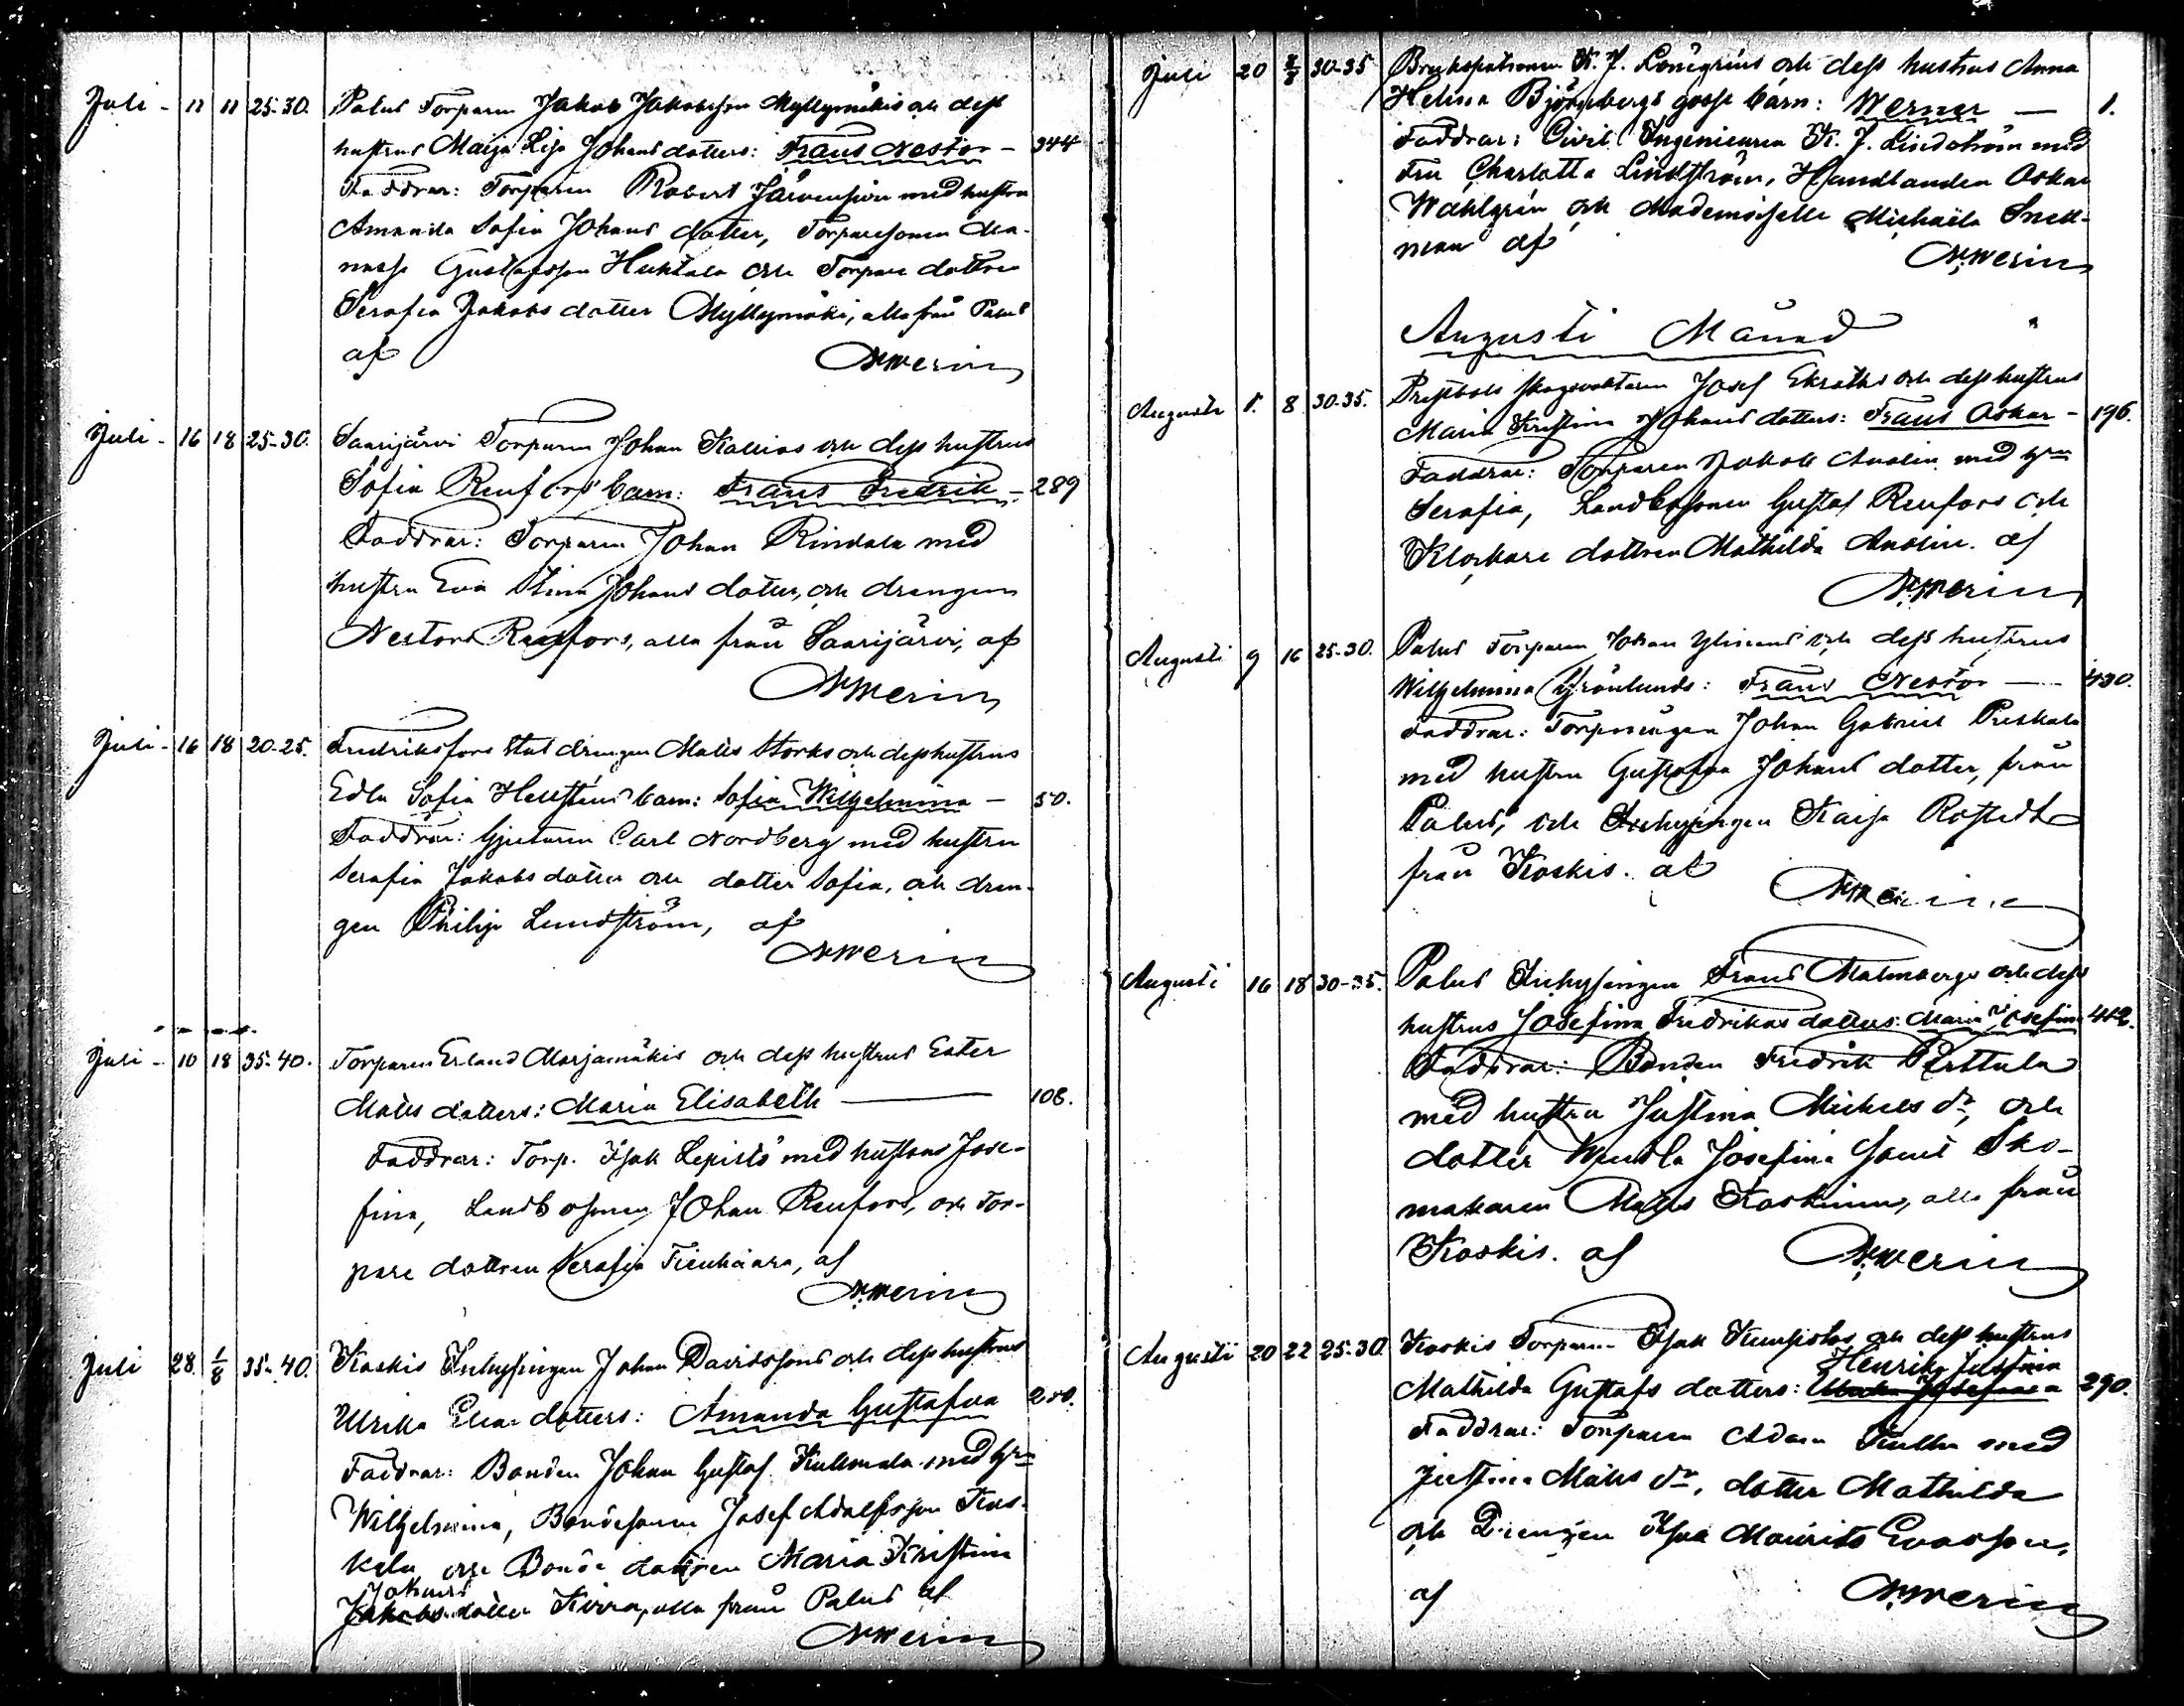 Juli - 11 11 25-30. Palus Torparen Jakob Jakobsson Myllymäkis och dess
hustrus Maija Lisa Johans dotters: Frans Nestor - 344
Faddrar: Torparen Robert Järvensivu med hustru
Amanda Sofia Johans dotter, Torparesonen Ma-
nasse Gustafsson Huhtala och Torpare dottren
Serafia Jakobs dotter Myllymäki, alla från Palus
af
Juli - 16 18 25-30. Saarijärvi Torparen Johan Kallios och dess hustrus
Sofia Renfors barn: Frans Fredrik - 289
Faddrar: Torparen Johan Rindala med
hustru Eva Stina Johans dotter, och drengen
Nestor Renfors, alla från Saarijärvi, af
Juli - 16 18 20-25. Fredriksfors Stat drengen Matts Storks och dess hustrus
Edla Sofia Hellsténs barn: Sofia Wilhelmina - 50.
Faddrar: Gjutaren Carl Nordberg med hustru
Serafia Jakobs dotter och dotter Sofia, och dren-
gen Philip Lundström, af
Juli - 10 18 35-40. Torparen Erland Marjamäkis och dess hustrus Ester
Matts dotters: Maria Elisabeth 108.
Faddrar: Torp. Isak Lepistö med hustrus Jose-
fina, Landbosonen Johan Renfors, och Tor-
pare dottren Serafia Tienhaara, af
Juli 28 1/8 35-40. Koskis Inhysingen Johan Davidssons och dess hustrus
Ulrika Elias dotters: Amanda Gustafva 250.
Faddrar: Bonden Johan Gustaf Kullmala med h:u
Wilhelmina, Bondesonen Josef Adolfsson Kas-
kela och Bonde dottren Maria Kristina
Johans
Jakobs dotter Kivira, alla från Palus af
Juli 20 30-35 Brukspatronen K. J. Lönegrens och dess hustrus Anna
Helena Björnbergs gosse barn: Werner 1.
Faddrar: Civil Ingenieuren K. J. Lindström med
Fru Charlotta Lindström, Handlanden Oskar
Wahlgrén och Mademoiselle Michaëla Snell-
man af
Augusti Månad
Augusti 1. 8 30-35. skogsvaktaren Josef Ekroths och dess hustrus
Maria Kristina Johans dotters: Frans Oskar - 196.
Faddrar: Torparen Jakob Anolin med h:u
Serafia, Landbosonen Gustaf Renfors och
Klockare dottren Mathilda Anolin. af
Augusti 9 16 25-30. Palus Torparen Johan Ylinens och dess hustrus
Wilhelmina Grönlunds: Frans Nestor 430.
Faddrar: Torparingen Johan Gabriel Preskala
med hustru Gustafva Johans dotter, från
Palus, och Inhysingen Kaisa Rostedt
från Koskis. af
Augusti 16 18 30-35. Palus Inhysingen Frans Malmbergs och dess
hustrus Josefina Fredrikas dotters: Maria Josefina 412.
Faddrar: Bonden Fredrik Perttula
med hustru Justina Michels d:r, och
dotter Wendla Josefina samt Sko-
makaren Matts Koskinen, alla från
Koskis. af
Augusti 20 22 25-30. Koskis Torparen Isak Kuusistos och dess hustrus
Henrika Justina
Mathilda Gustafs dotters: 290.
Faddrar: Torparen Adam Kulla med
Justina Matts d:r, dotter Mathilda
och Drengen Isak Maurits Evasson,
af